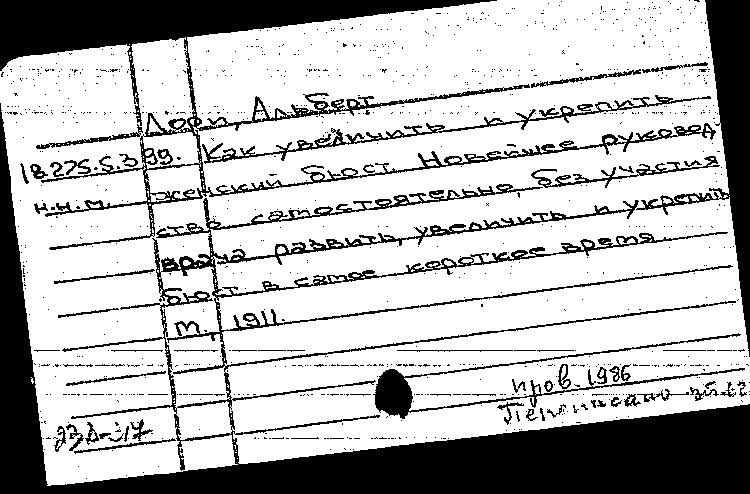 Лори, Альберт
18.275.5.399. Как увеличить и укрепить
н.н.м. женский бюст. Новейшее руковод
ство самостоятельно, без участия
врача развить, увеличить и укрепить
бюст в самое короткое время.
М., 1911.
пров. 1986
Переписано